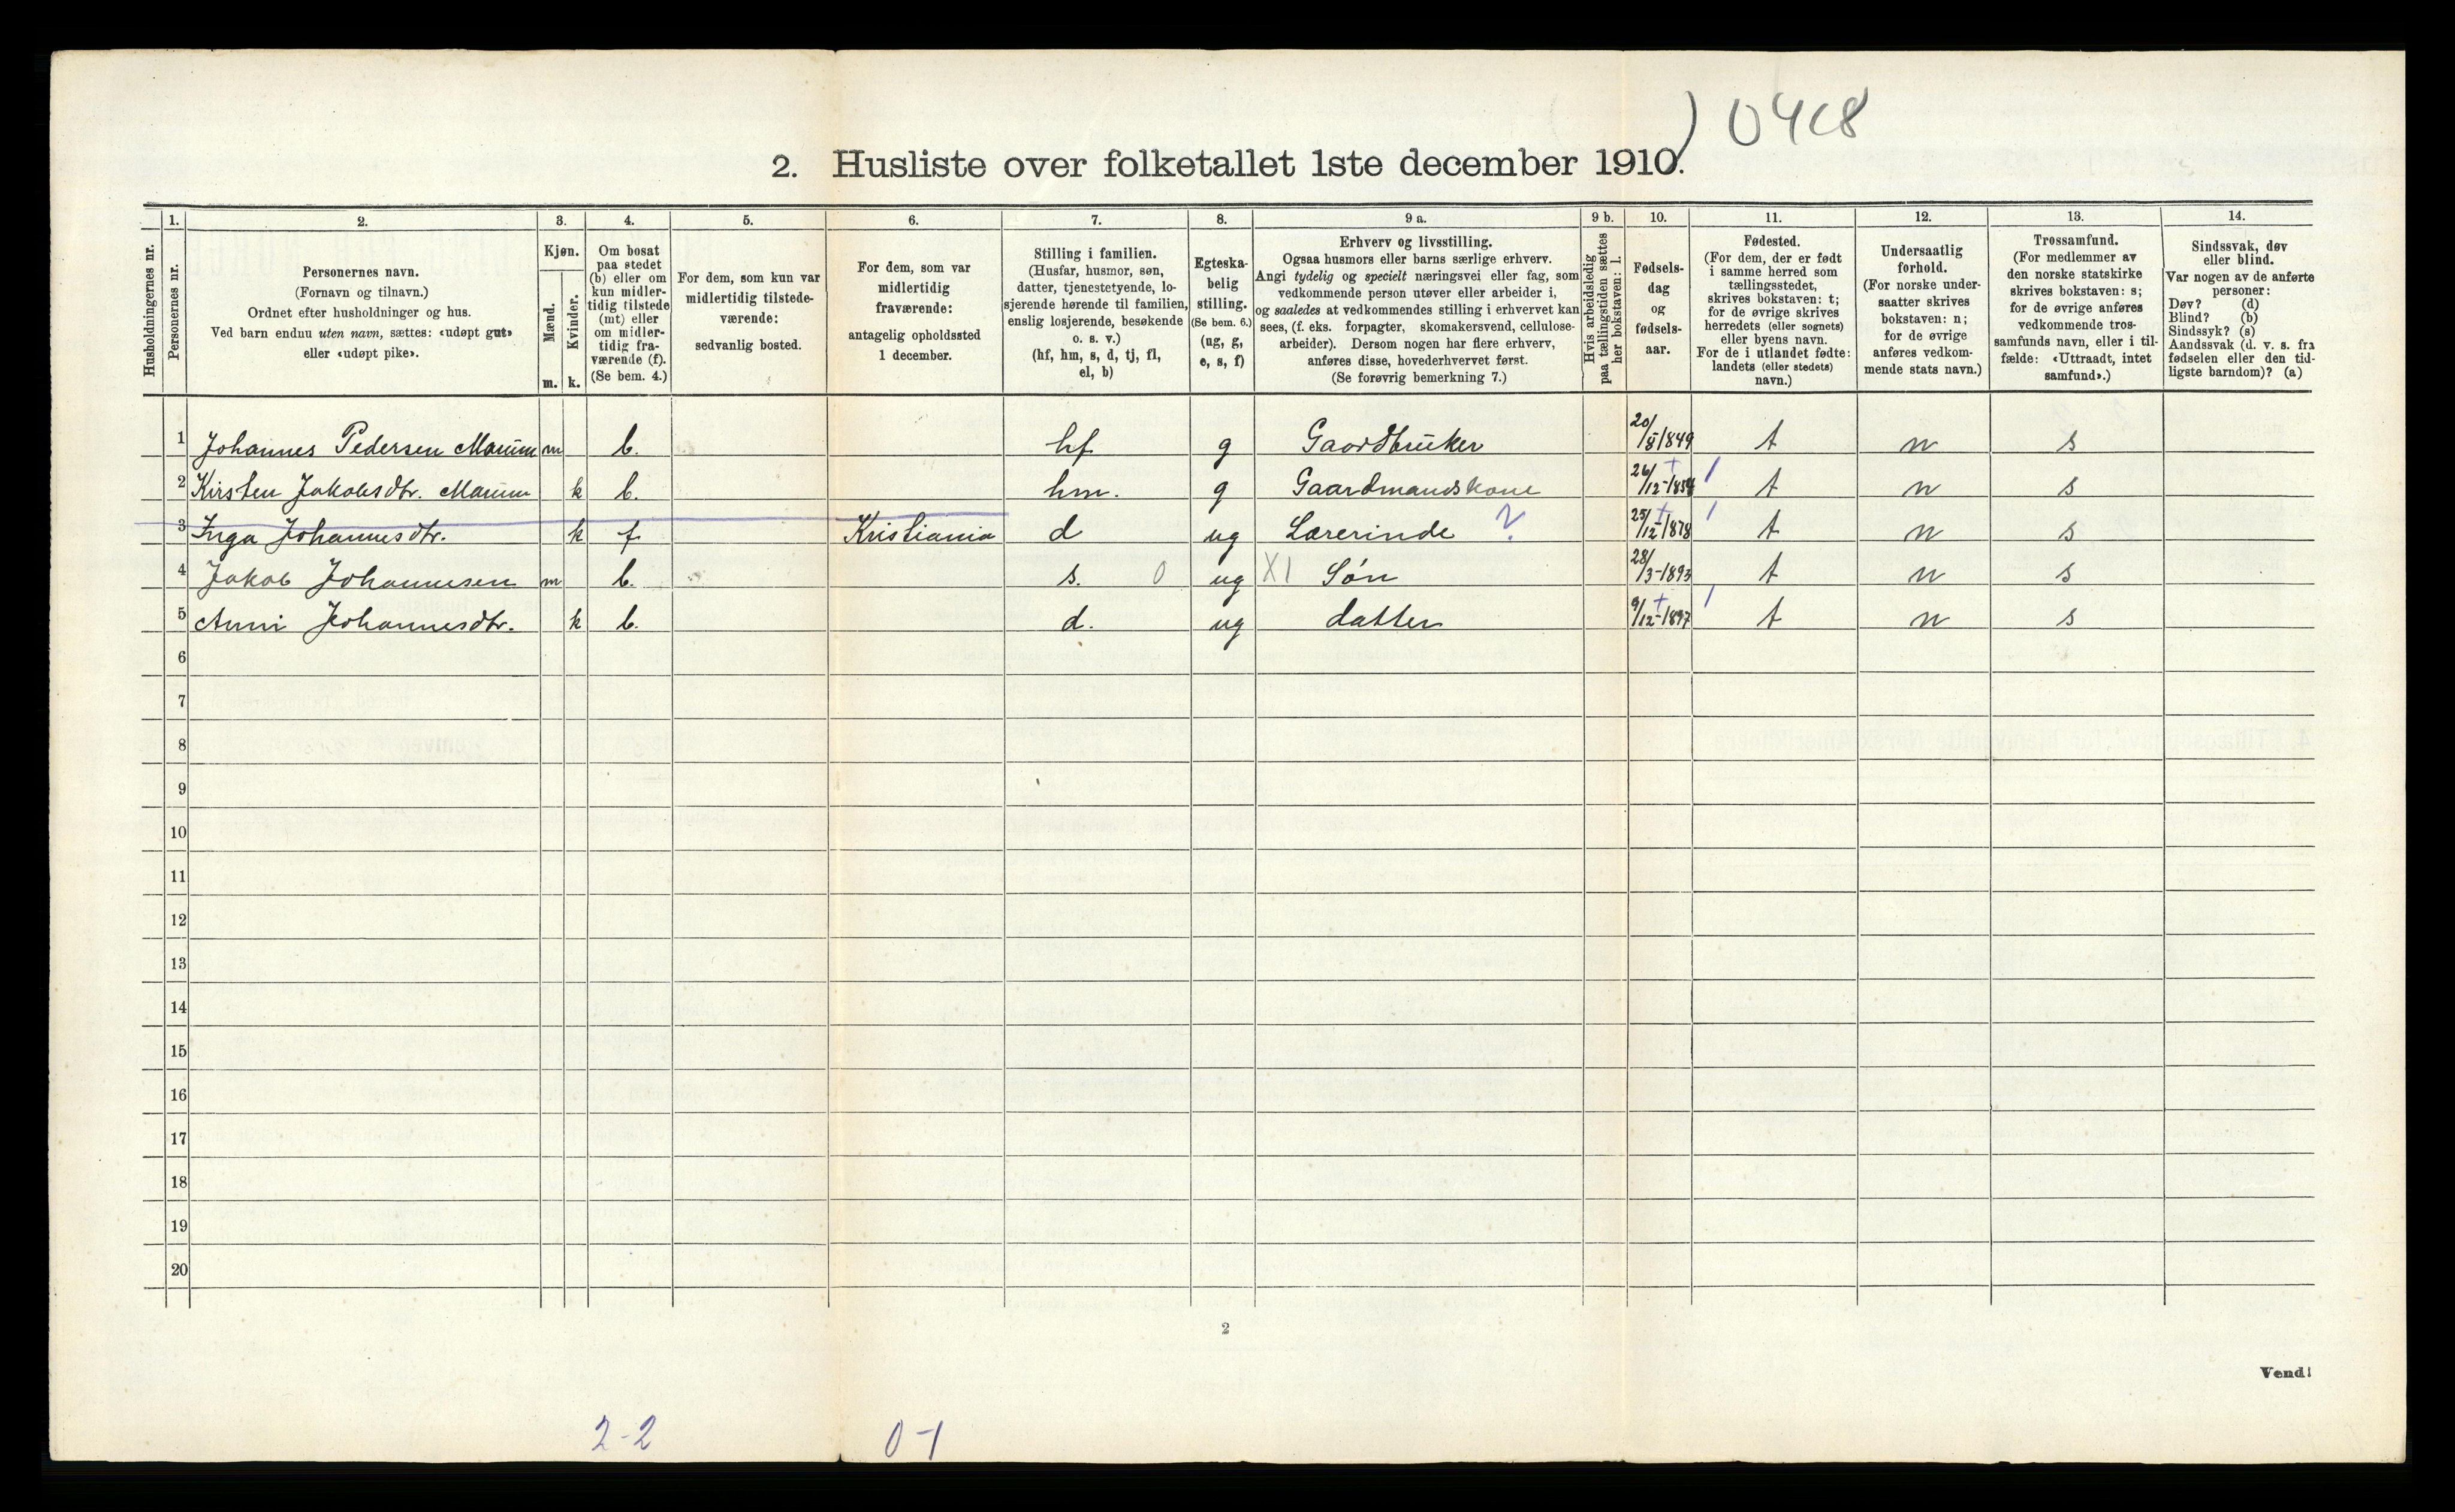 ) 0428
2. Husliste over folketallet 1ste december 1910.
Husholdningernes nr.
1.
Personernes nr.
2.
Personernes navn.
(Fornavn og tilnavn.)
Ordnet efter husholdninger og hus.
Ved barn endnu uten navn, sættes: «udøpt gut»
eller «udøpt pike».
3.
Kjøn.
Mænd.
Kvinder.
m. k.
4.
Om bosat
paa stedet
(b) eller om
kun midler-
tidig tilstede
(mt) eller
om midler-
tidig fra-
værende (f).
(Se bem. 4.)
5.
For dem, som kun var
midlertidig tilstede-
værende:
sedvanlig bosted.
6.
For dem, som var
midlertidig
fraværende:
antagelig opholdssted
1 december.
7.
Stilling i familien.
(Husfar, husmor, søn,
datter, tjenestetyende, lo-
sjerende hørende til familien,
enslig losjerende, besøkende
o. s. v.)
(hf, hm, s, d, tj, fl,
el, b)
8.
Egteska-
belig
stilling.
(Se bem. 6.)
(ug, g,
e, s, f)
9 a.
Erhverv og livsstilling.
Ogsaa husmors eller barns særlige erhverv.
Angi tydelig og specielt næringsvei eller fag, som
vedkommende person utøver eller arbeider i,
og saaledes at vedkommendes stilling i erhvervet kan
sees, (f. eks. forpagter, skomakersvend, cellulose-
arbeider). Dersom nogen har flere erhverv,
anføres disse, hovederhvervet først.
(Se forøvrig bemerkning 7.)
9 b.
Hvis arbeidsledig
paa tællingstiden sættes
her bokstaven: l.
10.
Fødsels-
dag
og
fødsels-
aar.
11.
Fødested.
(For dem, der er født
i samme herred som
tællingsstedet,
skrives bokstaven: t;
for de øvrige skrives
herredets (eller sognets)
eller byens navn.
For de i utlandet fødte:
landets (eller stedets)
navn.)
12.
Undersaatlig
forhold.
(For norske under-
saatter skrives
bokstaven: n;
for de øvrige
anføres vedkom-
mende stats navn.)
13.
Trossamfund.
(For medlemmer av
den norske statskirke
skrives bokstaven: s;
for de øvrige anføres
vedkommende tros-
samfunds navn, eller i til-
fælde: «Uttraadt, intet
samfund».)
14.
Sindssvak, døv
eller blind.
Var nogen av de anførte
personer:
Døv? (d)
Blind? (b)
Sindssyk? (s)
Aandssvak (d. v. s. fra
fødselen eller den tid-
ligste barndom)? (a)
1 Johannes Pedersen Maurum m b. hf g Gaardbruker 20/8 1849 t n s
2 Kirsten Jakobsdtr. Maurum k b. hm. g Gaardmandskone 26/12-1854 t n s
3 Inga Johannesdtr. k f Kristiania d ug Lærerinde ? 25/12-1878 t n s
4 Jakob Johannesen m b. s. 0 ug X1 Søn 28/3-1893 t n s
5 Anni Johannesdtr. k b. d. ug datter 9/12-1897 t n s
6
7
8
9
10
11
12
13
14
15
16
17
18
19
20
2
Vend!
2-2 0-1